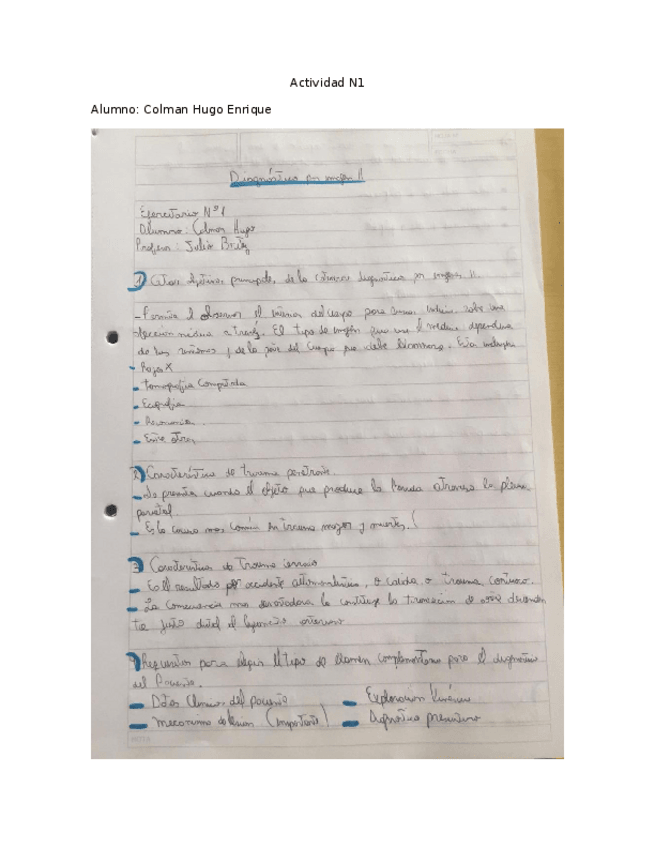 Actividad N1
Alumno: Colman Hugo Enrique
Diagnóstico por imagen II
Ejercitario Nº1
Alumno: Colman Hugo
Profesor: Julio Britez
1) Citar objetivos principales de la diagnóstico por imagen II.
-Permite observar el interior del cuerpo para
médica a través. El tipo de imagen que use el médico dependerá
de los síntomas y de la parte del cuerpo que debe examinarse. Esto incluye
- Rayos X
- Tomografía Computada
- Ecografía
- Resonancia.
- Entre otras
2) Característica de trauma penetrante.
- Se presenta cuando el objeto que produce la herida atraviesa la pleura
parietal
- Es la causa mas común en trauma mayor y muertes.
3) Características de trauma cerrado
- Es el resultado por accidente automovilístico, o caída o trauma contuso.
- La consecuencia mas devastadora la constituye la transección de aorta descenden
te justo distal al ligamento arterioso
Requisitos para elegir el tipo de examen complementario para el diagnóstico
del Paciente.
- Datos Clínicos del paciente
- Exploración
- mecanismo de lesión (importante)
- Diagnóstico presuntivo
NOTES